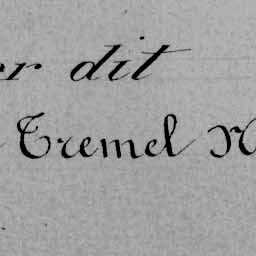 er dit
Tremel